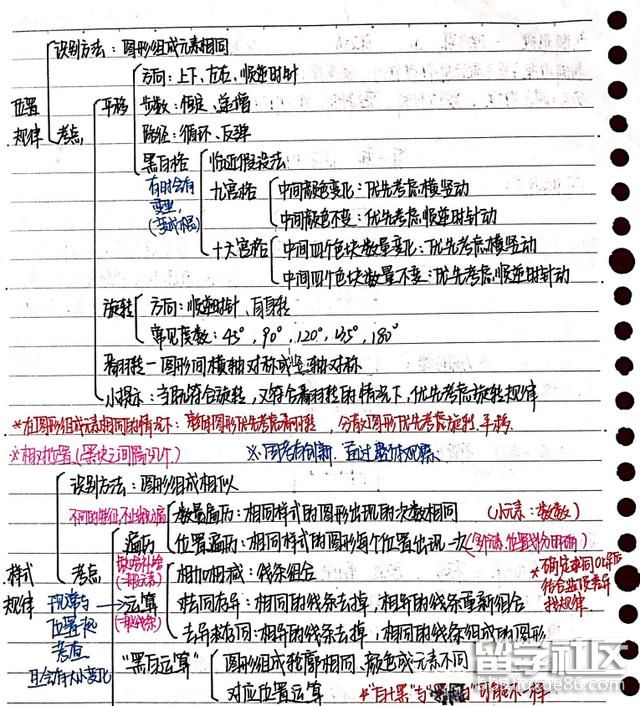 识别方法：图形组成元素相同
位置规律
考点
平移
方向：上下、左右、顺逆时针
步数：恒定、递增
路径：循环、反弹
黑白格
就近假设法
有时会有变业
九宫格
中间颜色变化：优先考虑横竖动
中间颜色不变：优先考虑顺逆时针动
十六宫格
中间四个色块数量变化：优先考虑横竖动
中间四个色块数量不变：优先考虑顺逆时针动
旋转
方向：顺逆时针、自身转
常见度数：45°，90°，120°，135°，180°
翻转－图形间横轴对称或竖轴对称
小提示：当既符合旋转，又符合翻转的情况下，优先考虑旋转规律
*在图形组成元素相同的情况下：整体图形优先考虑翻转，分散图形优先考虑旋转、平移
※相对位置（黑块之间隔几个）
识别方法：图形组成相似
样式规律
考点
遍历
数量遍历：相同样式的图形出现的次数相同
（小元素：数数）
位置遍历：相同样式的图形每个位置出现一次
运算
相加相减：线条组合
求同去异：相同的线条去掉，相异的线条重新组合
去异求同：相异的线条去掉，相同的线条组成的图形
平常与位置规考查
且会有大小变化
"黑白运算"
图形组成轮廓相同、颜色或元素不同
对应位置运算
*"白+黑"与"黑+白"可能不一样
留学社区
liuxue86.com